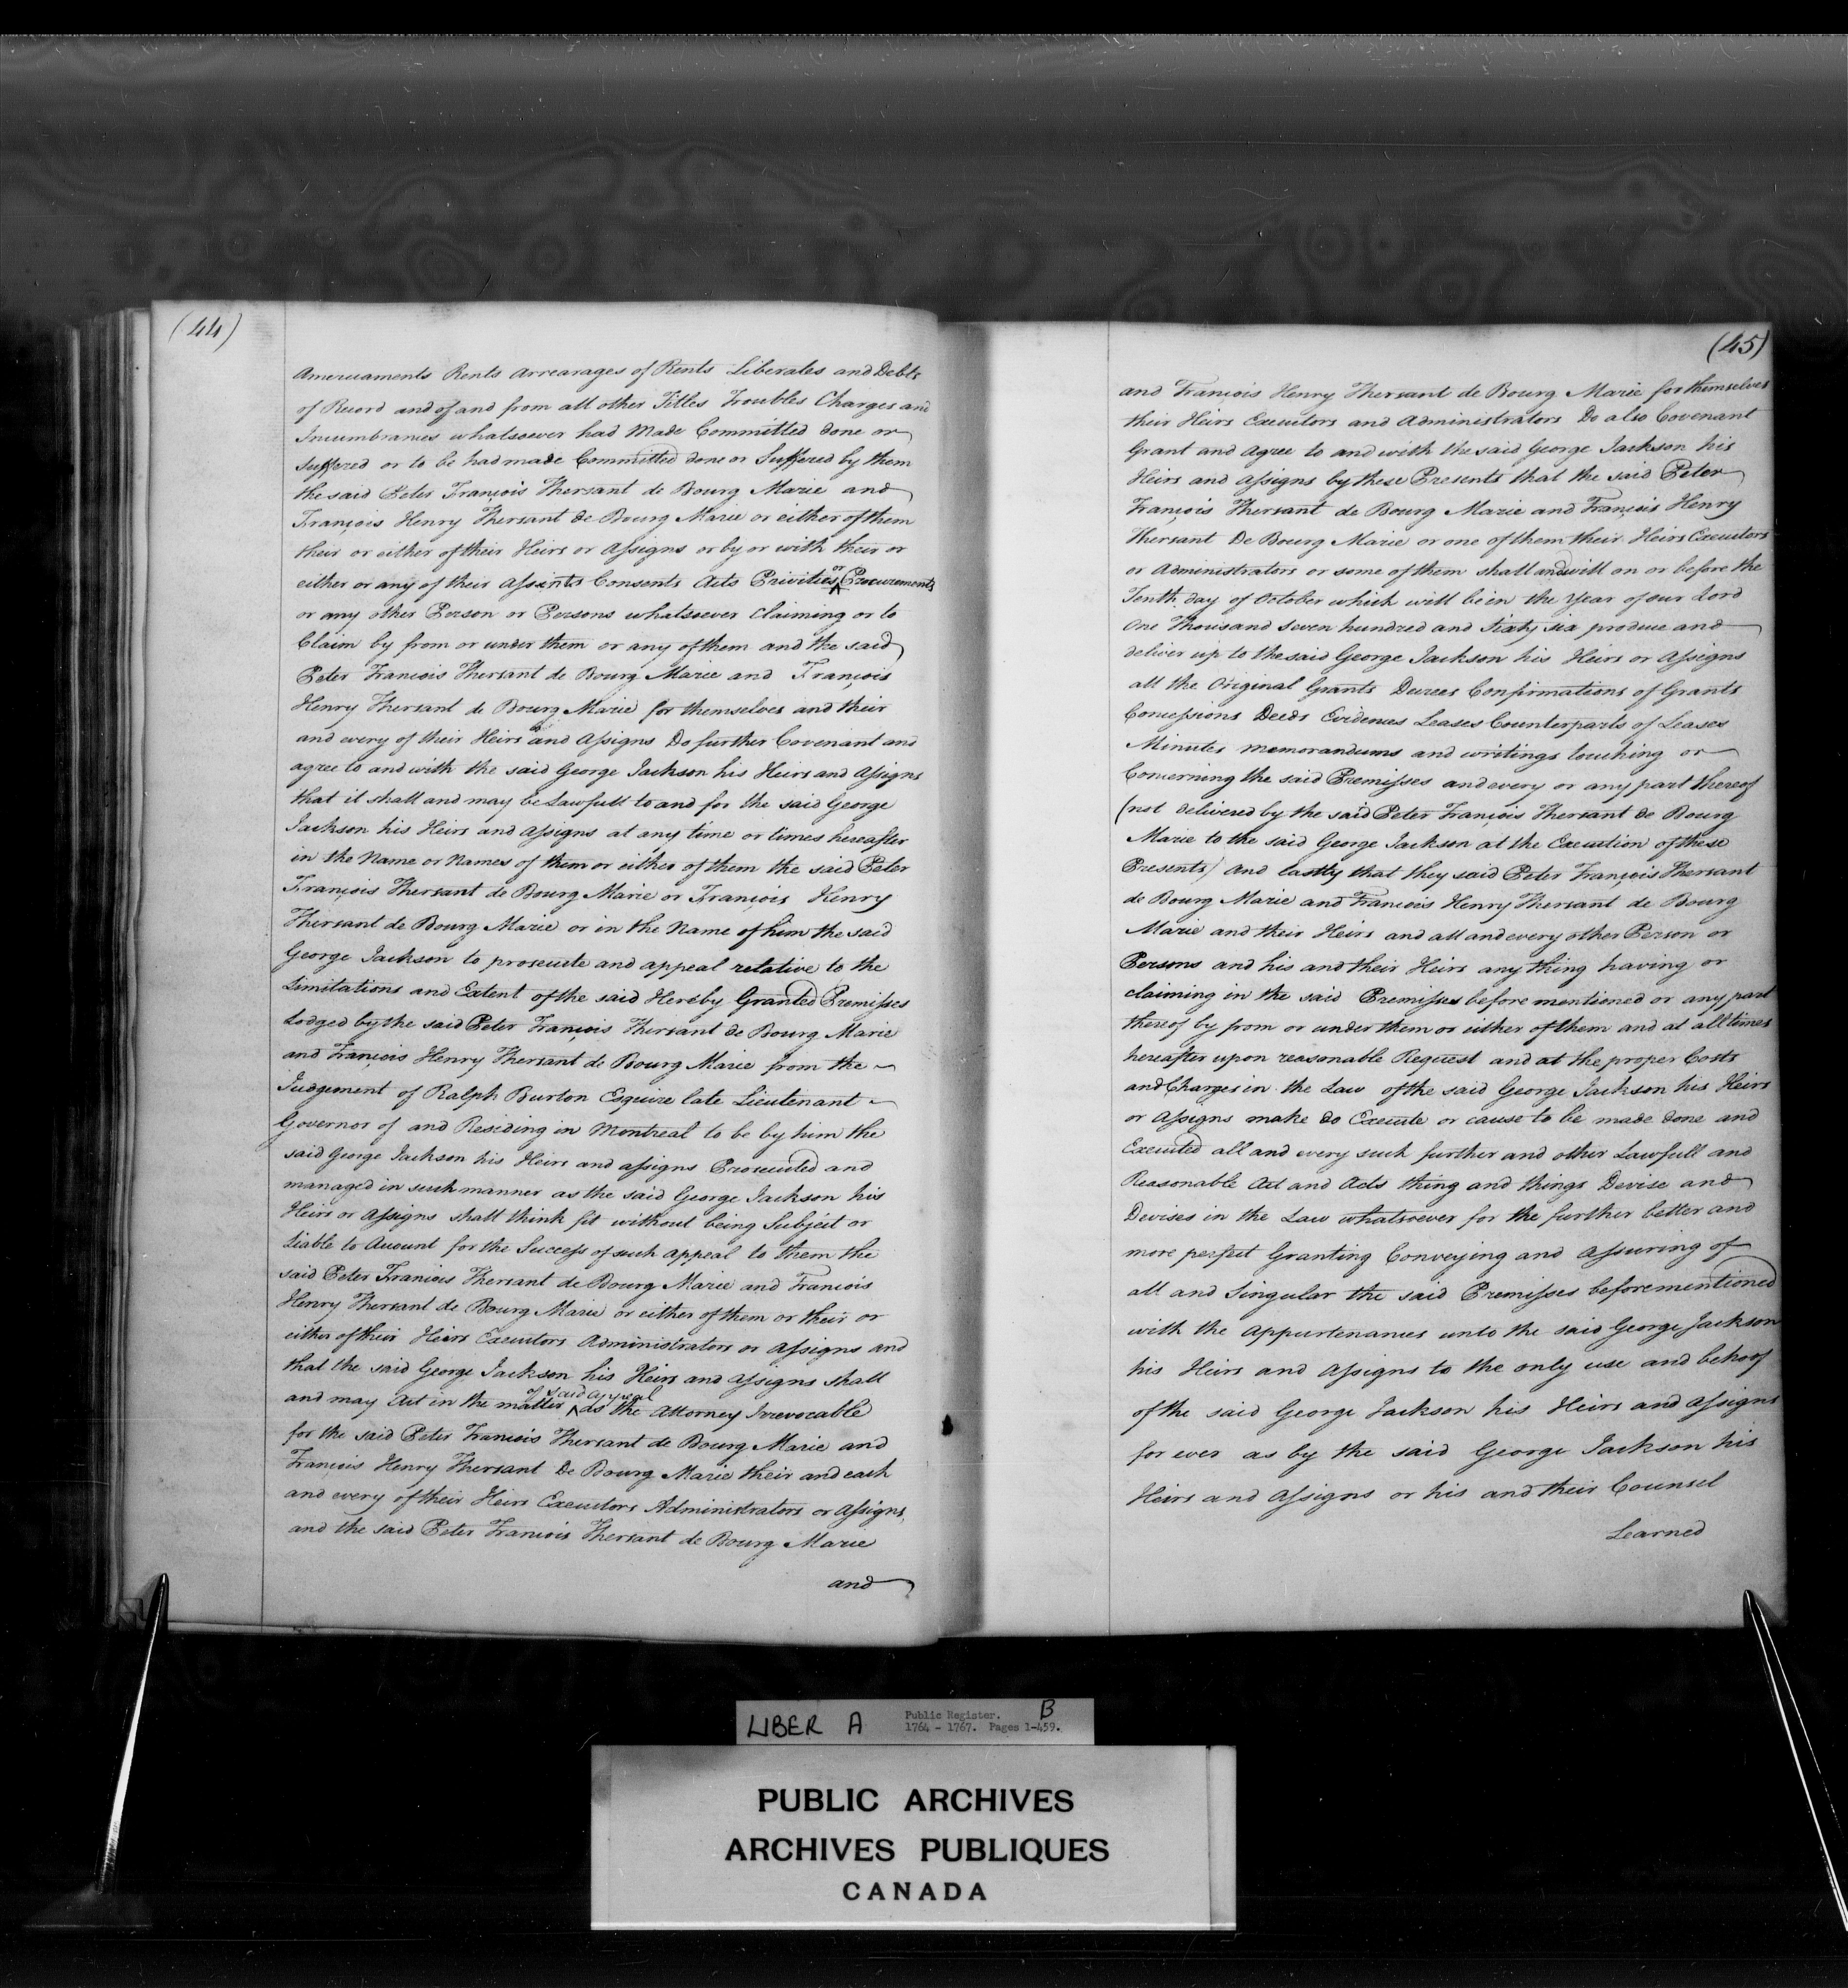 (44)
Amerciaments Rents Arrearages of Rents Liberates and Debts
of Record and of and from all other Titles Troubles Charges and
Incumbrances whatsoever had Made Committed done or
Suffered or to be had made Committed done or Suffered by them
the said Peter François Thersant de Bourg Marie and
François Henry Thersant de Bourg Marie or either of them
their or either of their Heirs or Assigns or by or with their or
either or any of their Assents Consents Acts Privities or Procurements
or any other Person or Persons whatsoever Claiming or to
Claim by from or under them or any of them and the said
Peter François Thersant de Bourg Marie and François
Henry Thersant de Bourg Marie for themselves and their
and every of their Heirs and Assigns Do further Covenant and
agree to and with the said George Jackson his Heirs and Assigns
that it shall and may be Lawfull to and for the said George
Jackson his Heirs and Assigns at any time or times hereafter
in the Name or Names of them or either of them the said Peter
François Thersant de Bourg Marie or François Henry
Thersant de Bourg Marie or in the Name of him the said
George Jackson to prosecute and appeal relative to the
Limitations and Extent of the said Hereby Granted Premisses
Lodged by the said Peter François Thersant de Bourg Marie
and François Henry Thersant de Bourg Marie from the
Judgement of Ralph Burton Esquire late Lieutenant
Governor of and Residing in Montreal to be by him the
said George Jackson his Heirs and assigns Prosecuted and
managed in such manner as the said George Jackson his
Heirs or Assigns shall think fit without being Subject or
Liable to Account for the Success of such appeal to them the
said Peter François Thersant de Bourg Marie and François
Henry Thersant de Bourg Marie or either of them or their or
either of their Heirs Executors Administrators or Assigns and
that the said George Jackson his Heirs and Assigns shall
and may Act in the matter of said appeal as the Attorney Irrevocable
for the said Peter François Thersant de Bourg Marie and
François Henry Thersant De Bourg Marie their and each
and every of their Heirs Executors Administrators or Assigns,
and the said Peter François Thersant de Bourg Marie
and
(45)
and François Henry Thersant de Bourg Marie for themselves
their Heirs Executors and Administrators Do also Covenant
Grant and Agree to and with the said George Jackson his
Heirs and Assigns by these Presents that the said Peter
François Thersant de Bourg Marie and François Henry
Thersant De Bourg Marie or one of them their Heirs Executors
or Administrators or some of them shall and will on or before the
Tenth day of October which will be in the Year of our Lord
One Thousand Seven hundred and Sixty six produce and
deliver up to the said George Jackson his Heirs or Assigns
all the Original Grants Decrees Confirmations of Grants
Concessions Deeds Evidences Leases Counterparts of Leases
Minutes memorandums and writings touching or
Concerning the said Premisses and every or any part thereof
(not delivered by the said Peter François Thersant de Bourg
Marie to the said George Jackson at the Execution of these
Presents) and lastly that they said Peter François Thersant
de Bourg Marie and François Henry Thersant de Bourg
Marie and their Heirs and all and every other Person or
Persons and his and their Heirs any thing having or
claiming in the said Premisses before mentioned or any part
thereof by from or under them or either of them and at all times
hereafter upon reasonable Request and at the proper Costs
and Charges in the Law of the said George Jackson his Heirs
or Assigns make do Execute or cause to be made done and
Executed all and every such further and other Lawfull and
Reasonable Act and Acts thing and things Devise and
Devises in the Law whatsoever for the further better and
more perfect Granting Conveying and assuring of
all and Singular the said Premisses beforementioned
with the Appurtenances unto the said George Jackson
his Heirs and Assigns to the only use and behoof
of the said George Jackson his Heirs and Assigns
for ever as by the said George Jackson his
Heirs and Assigns or his and their Counsel
Learned
LIBER A Public Register. B
1764 - 1767. Pages 1-459.
PUBLIC ARCHIVES
ARCHIVES PUBLIQUES
CANADA